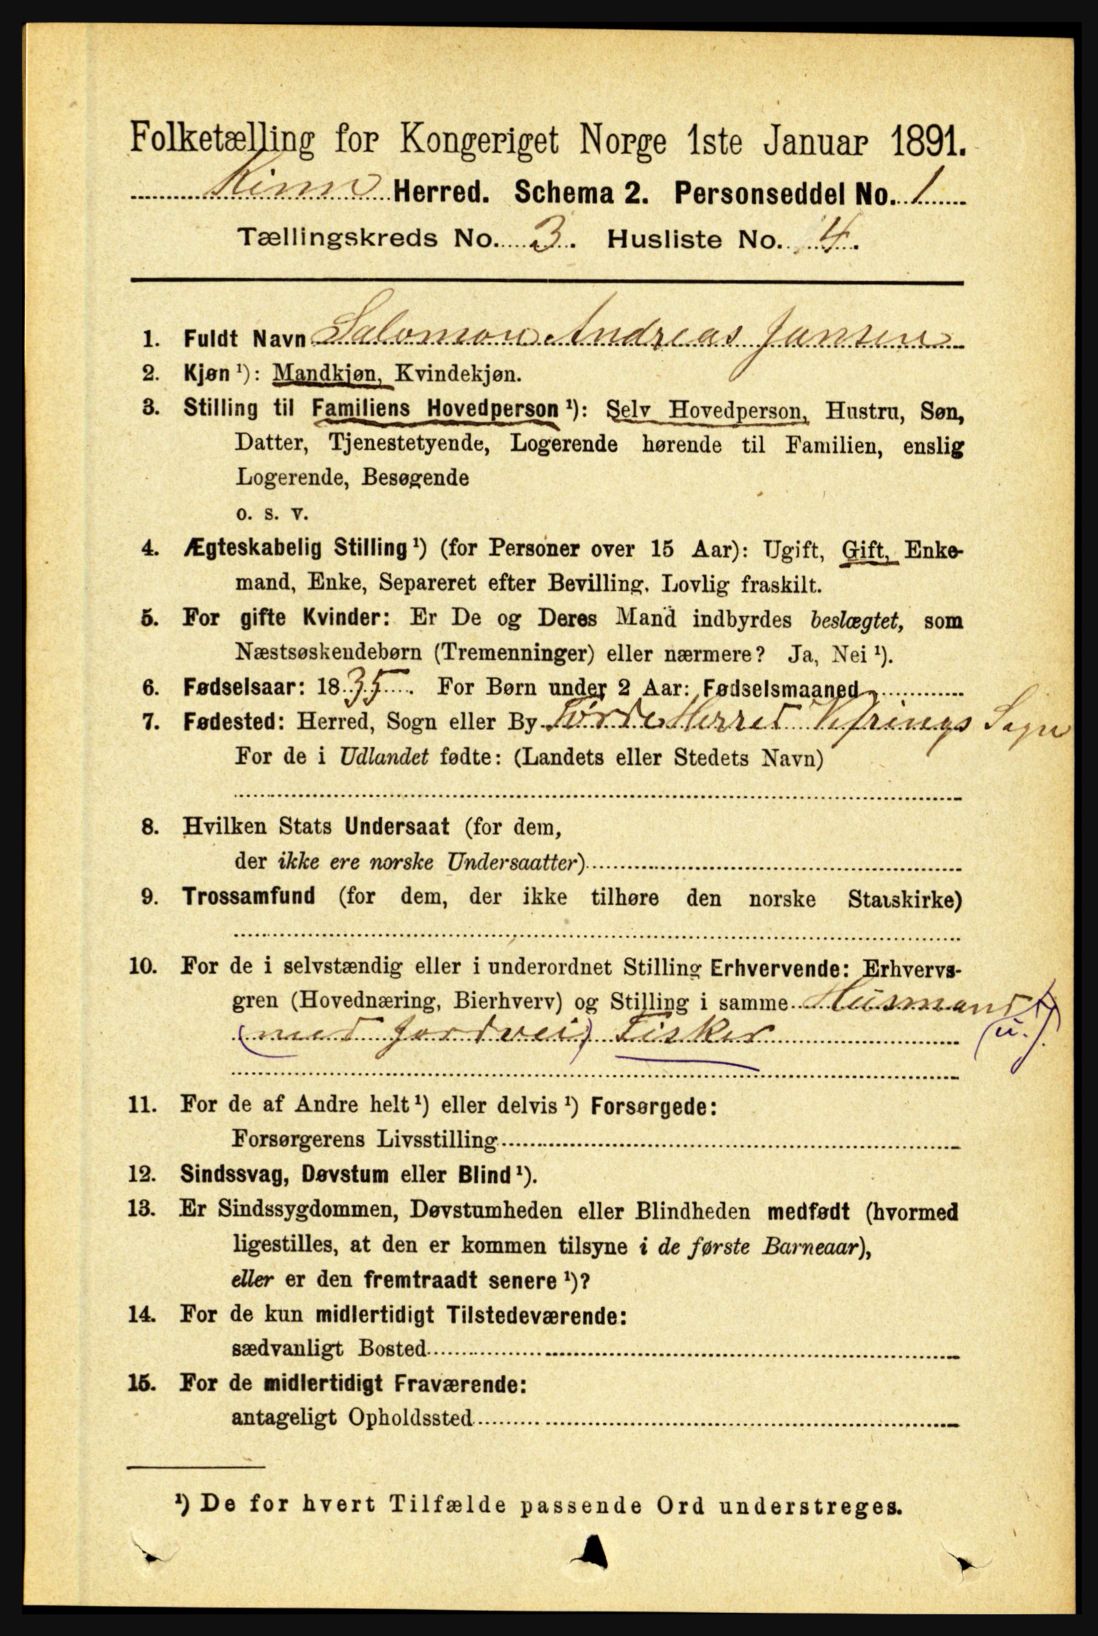 Folketælling for Kongeriget Norge 1ste Januar 1891.
Kinn Herred. Schema 2. Personseddel No. 1
Tællingskreds No. 3. Husliste No. 4.
1. Fuldt Navn Salomon Andreas Jansen
2. Kjøn ¹): Mandkjøn, Kvindekjøn.
3. Stilling til Familiens Hovedperson ¹): Selv Hovedperson, Hustru, Søn,
Datter, Tjenestetyende, Logerende hørende til Familien, enslig
Logerende, Besøgende
o. s. v.
4. Ægteskabelig Stilling ¹) (for Personer over 15 Aar): Ugift, Gift, Enke-
mand, Enke, Separeret efter Bevilling, Lovlig fraskilt.
5. For gifte Kvinder: Er De og Deres Mand indbyrdes beslægtet, som
Næstsøskendebørn (Tremenninger) eller nærmere? Ja, Nei ¹).
6. Fødselsaar: 1835. For Børn under 2 Aar: Fødselsmaaned
7. Fødested: Herred, Sogn eller By Førde Herred Vefrings Sogn
For de i Udlandet fødte: (Landets eller Stedets Navn)
8. Hvilken Stats Undersaat (for dem,
der ikke ere norske Undersaatter)
9. Trossamfund (for dem, der ikke tilhøre den norske Statskirke)
10. For de i selvstændig eller i underordnet Stilling Erhvervende: Erhvervs-
gren (Hovednæring, Bierhverv) og Stilling i samme Husmand
(med Jordvei) Fisker (u.)
11. For de af Andre helt ¹) eller delvis ¹) Forsørgede:
Forsørgerens Livsstilling
12. Sindssvag, Døvstum eller Blind ¹).
13. Er Sindssygdommen, Døvstumheden eller Blindheden medfødt (hvormed
ligestilles, at den er kommen tilsyne i de første Barneaar),
eller er den fremtraadt senere ¹)?
14. For de kun midlertidigt Tilstedeværende:
sædvanligt Bosted
15. For de midlertidigt Fraværende:
antageligt Opholdssted
¹) De for hvert Tilfælde passende Ord understreges.